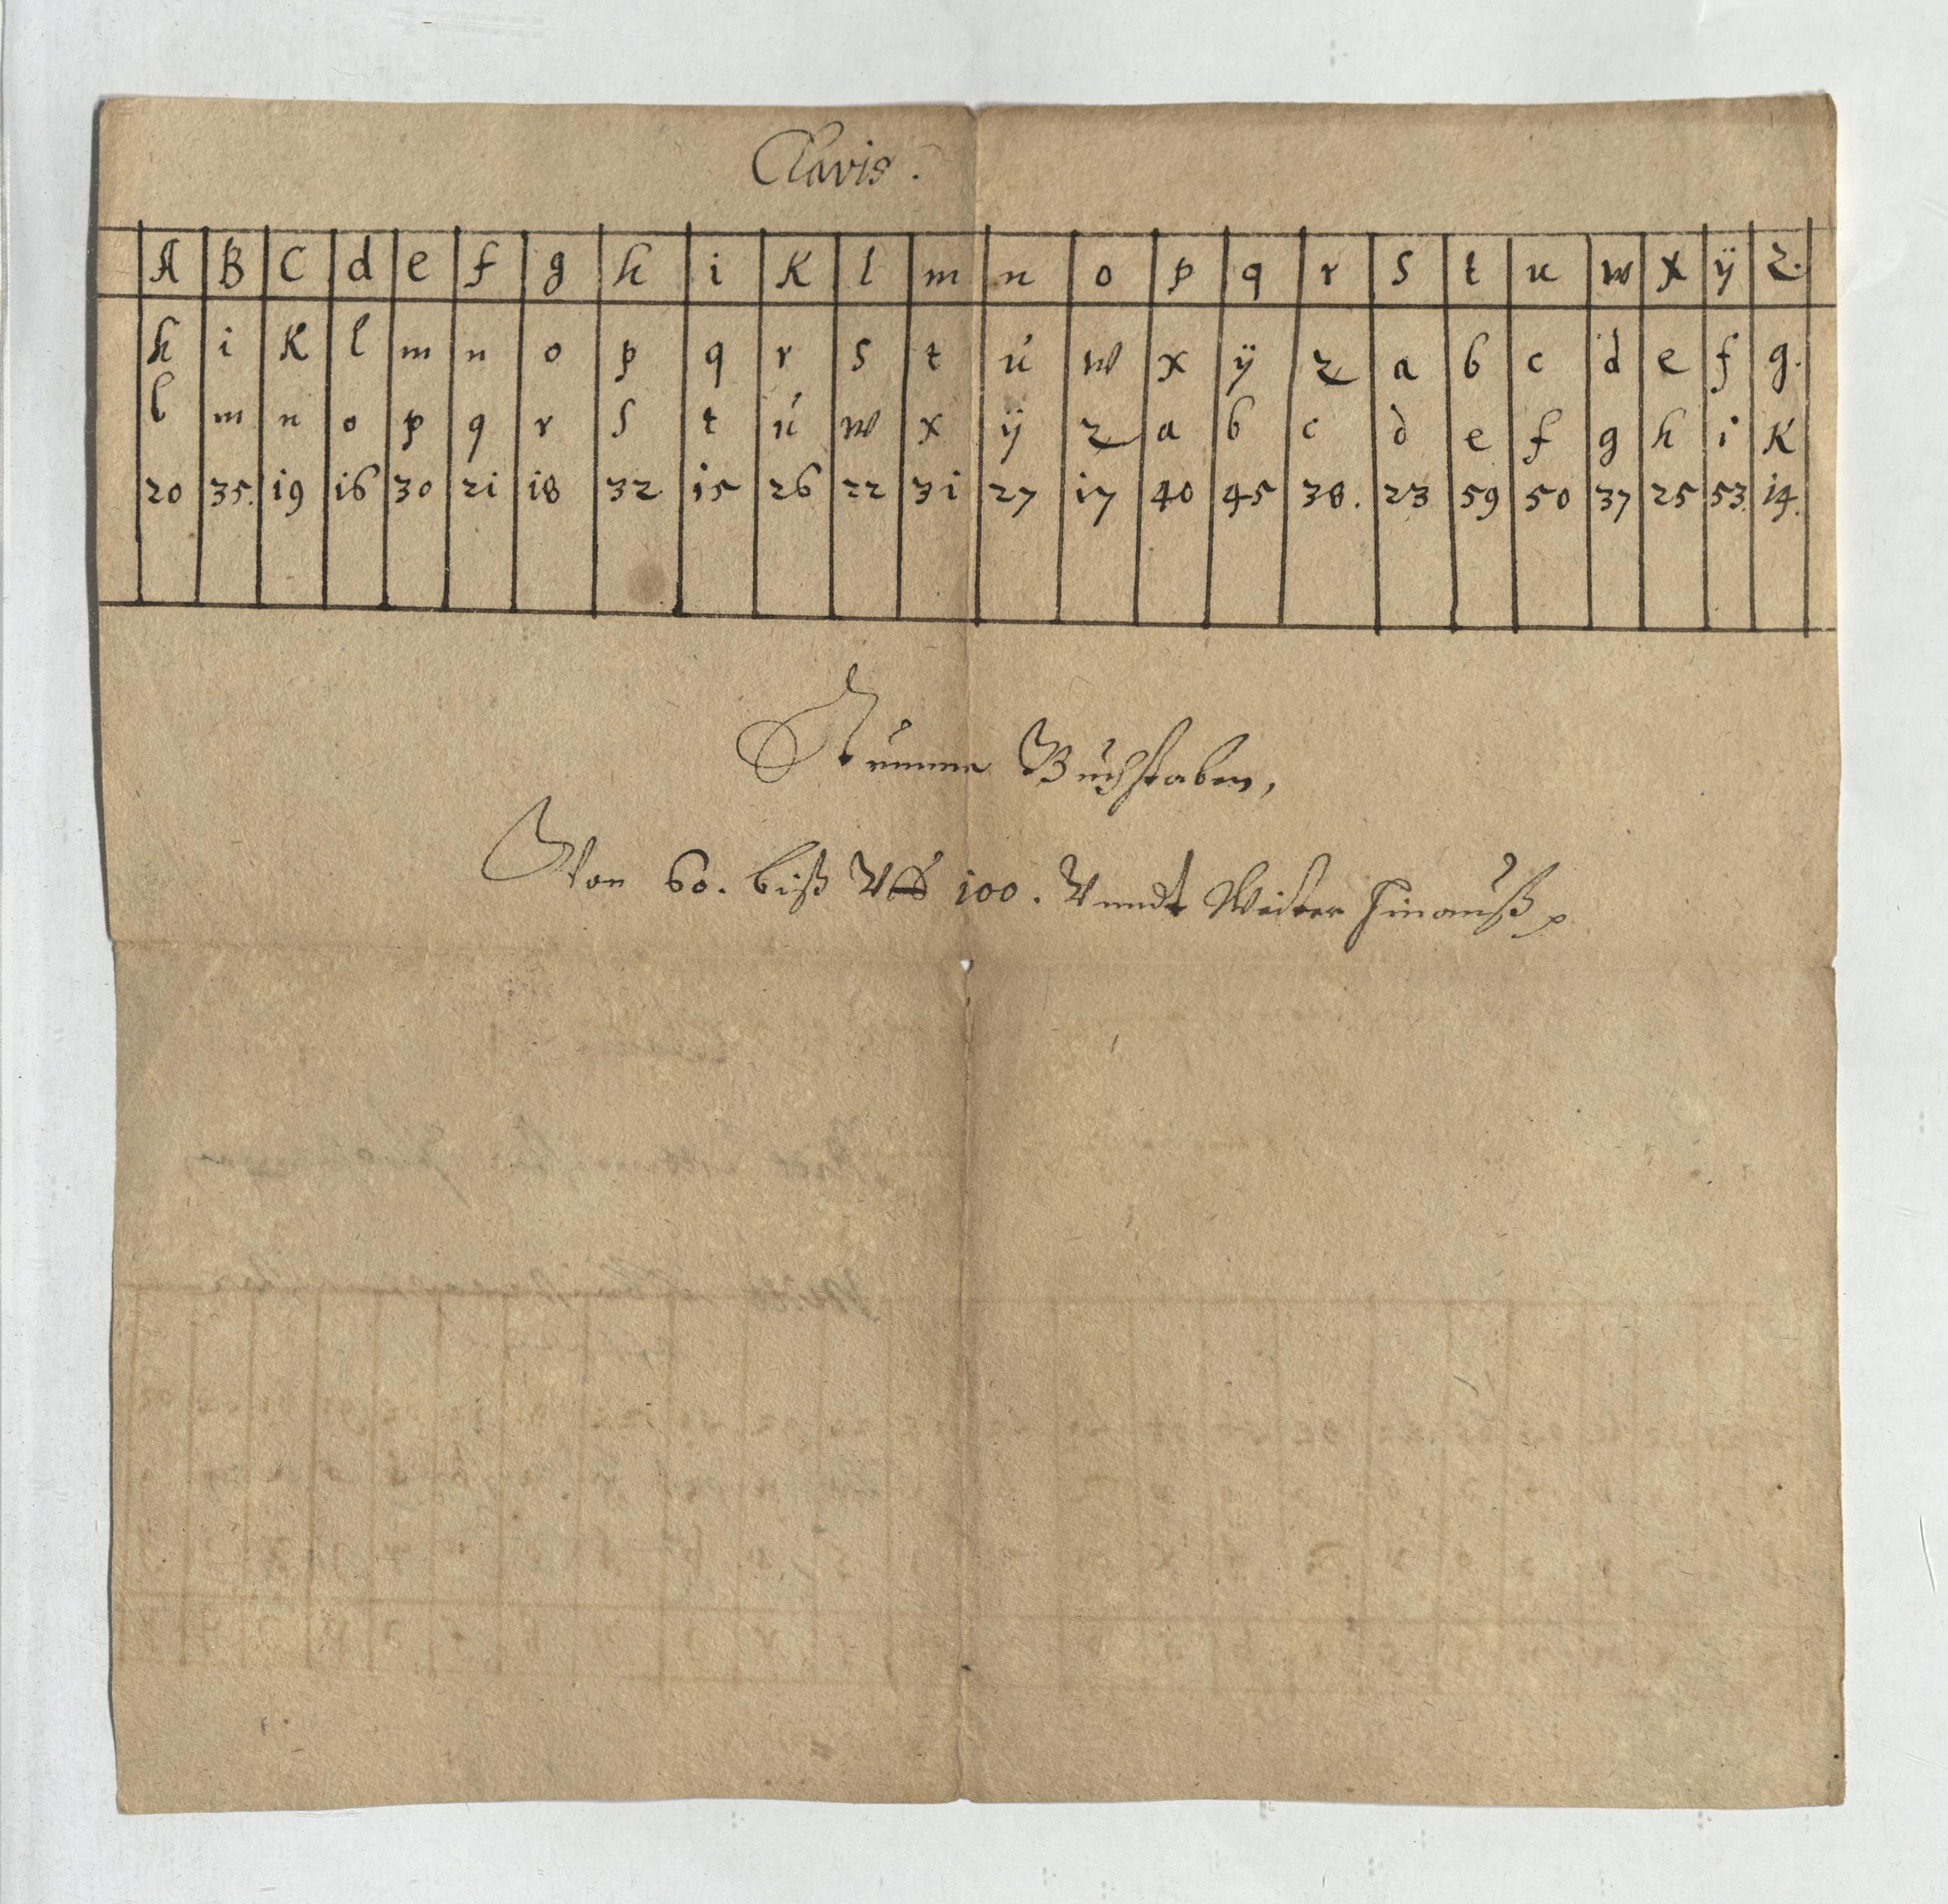 Clavis.
A B C d e f g h i K l m n o p q r s t u w x ÿ z.
h i K l m n o p q r s t ú w x ÿ z a b c d e f g.
l m n o p q r s t ú w x ÿ z a b c d e f g h i K
20 35. i9 i6 30 2i i8 32 i5 26 22 3i 27 i7 40 45 38. 23 59 50 37 25 53. i4.
Stumme Buchstaben,
Von 60. biß Vff i00. Vnndt Weiter hinauß